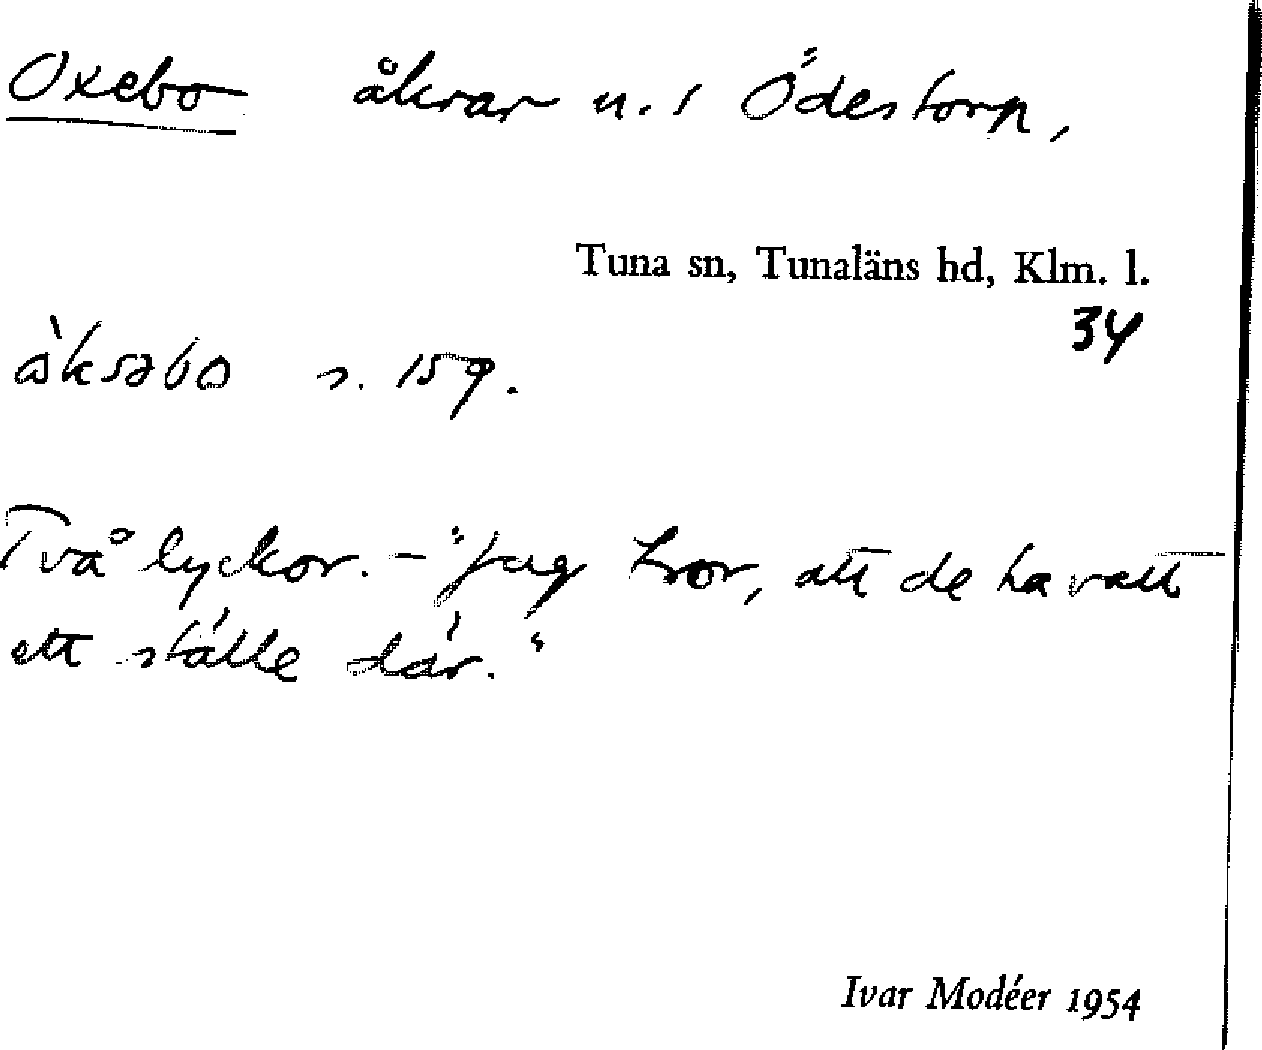 Oxebo åkrar u. s Ödestorp,
Tuna sn, Tunaläns hd, Klm. l.
34
s. 159.
Två lyckor. – "Jag tror, att de ha vatt
ett ställe där."
Ivar Modéer 1954